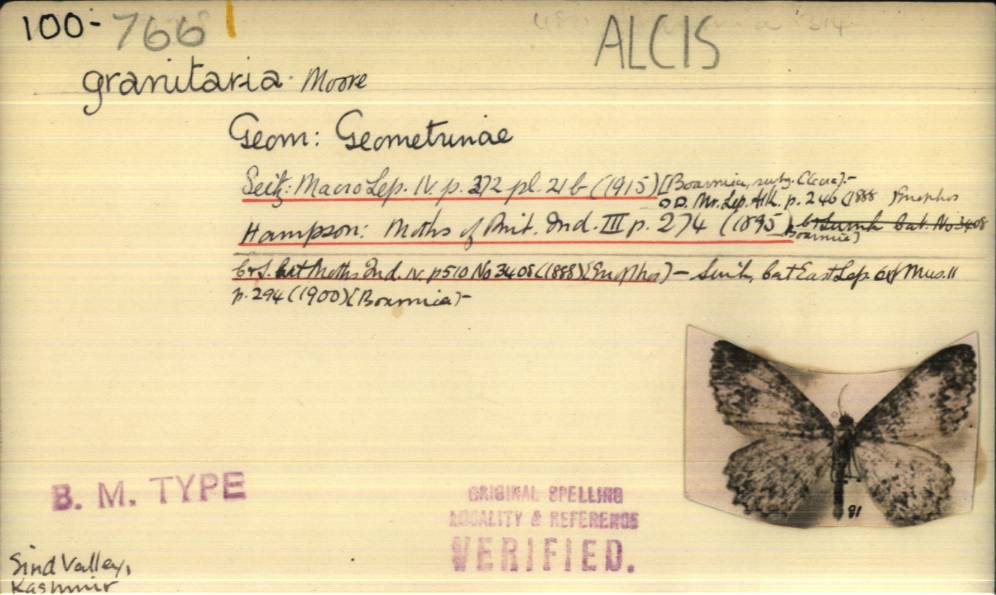 100-766 ALCIS
granitaria. Moore
Geom: Geometrinae
Seitz: Macro Lep. IV. p. 372 pl. 21 b (1915) [Boarmia, subg. Cleora].-
O.D. Mr. Lep. Atk. p. 246 (1888 Gnophos
Hampson: Moths of Brit. Ind. III p. 274 (1895) Cat. No 3408
Boarmia)
C & S. Cat Moths Ind. IV. p 510 No 3408 (1888) (Gnophos) - Swinh, Cat East Lep Oxf Mus. II
p. 294 (1900) (Boarmia) -
B. M. TYPE
ORIGINAL SPELLING
LOCALITY & REFERENCE
VERIFIED.
Sind Valley,
Kashmir
18